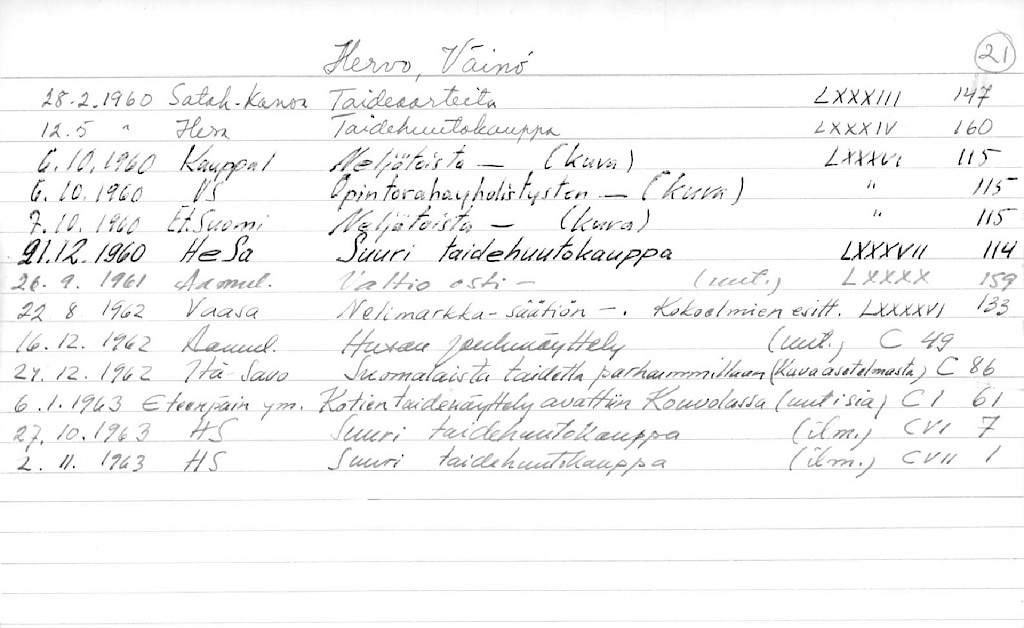 Hervo, Väinö 21
28.2.1960 Satak-Kansa Taideaarteita LXXXIII 147
12.5 " Hesa Taidehuutokauppa LXXXIV 160
6.10.1960 Kauppal Neljätoista — (kuva) LXXXVI 115
6.10.1960 VS Opintorahayhdistysten — (kuva) " 115
7.10.1960 Et.Suomi Neljätoista — (kuva) " 115
21.12.1960 HeSa Suuri taidehuutokauppa LXXXVII 114
26.9.1961 Aamul. Valtio osti — (uut.) LXXXX 159
22 8 1962 Vaasa Nelimarkka-säätiön —. Kokoelmien esitt. LXXXXVI 133
16.12.1962 Aamul. joulunäyttely (uut.) C 49
24.12.1962 Itä-Savo Suomalaista taidetta parhaimmillaan (Kuva asetelmasta) C 86
6.1.1963 Eteenpäin ym. Kotien taidenäyttely avattiin Kouvolassa (uutisia) CI 61
27.10.1963 HS Suuri taidehuutokauppa (ilm.) CVI 7
2.11.1963 HS Suuri taidehuutokauppa (ilm.) CVII 1